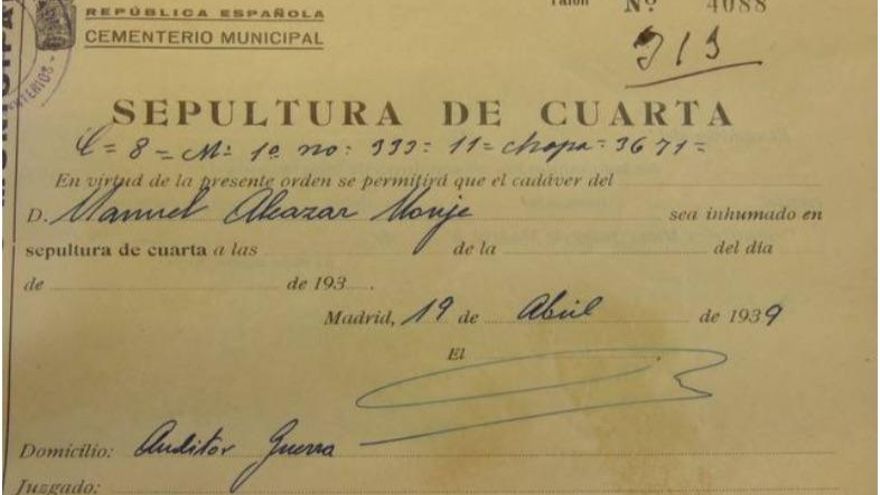 REPÚBLICA ESPAÑOLA
CEMENTERIO MUNICIPAL
Talón Nº 4088
313
SEPULTURA DE CUARTA
C= 8 = Mª 1ª no: 333= 11= chapa= 3671=
En virtud de la presente orden se permitirá que el cadáver del
D. Manuel Alcazar Monje sea inhumado en
sepultura de cuarta a las de la del día
de de 193
Madrid, 19 de Abril de 1939
El
Domicilio: Auditor Guerra
Juzgado: